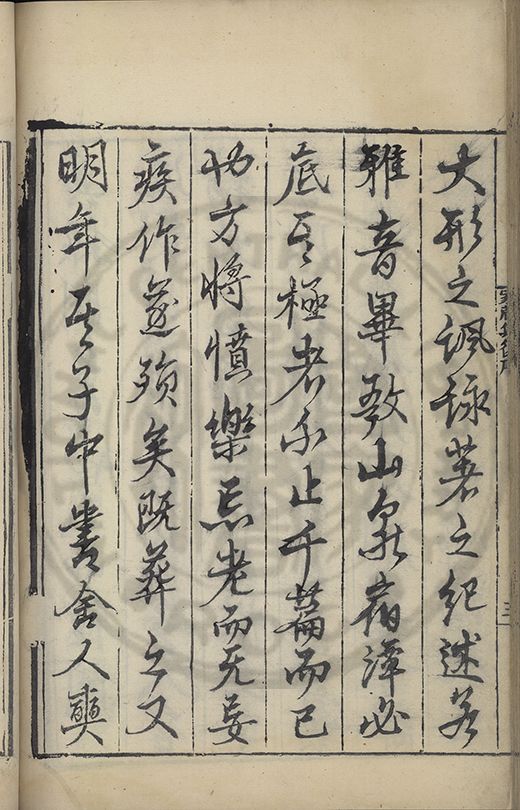 大形之諷詠著之紀述若
雅音畢發山泉宿澤必
底其極者不止千篇而已
也方將憤樂忘老而无妄
疾作遂殞矣既葬之又
明年其子中書舍人奭
三